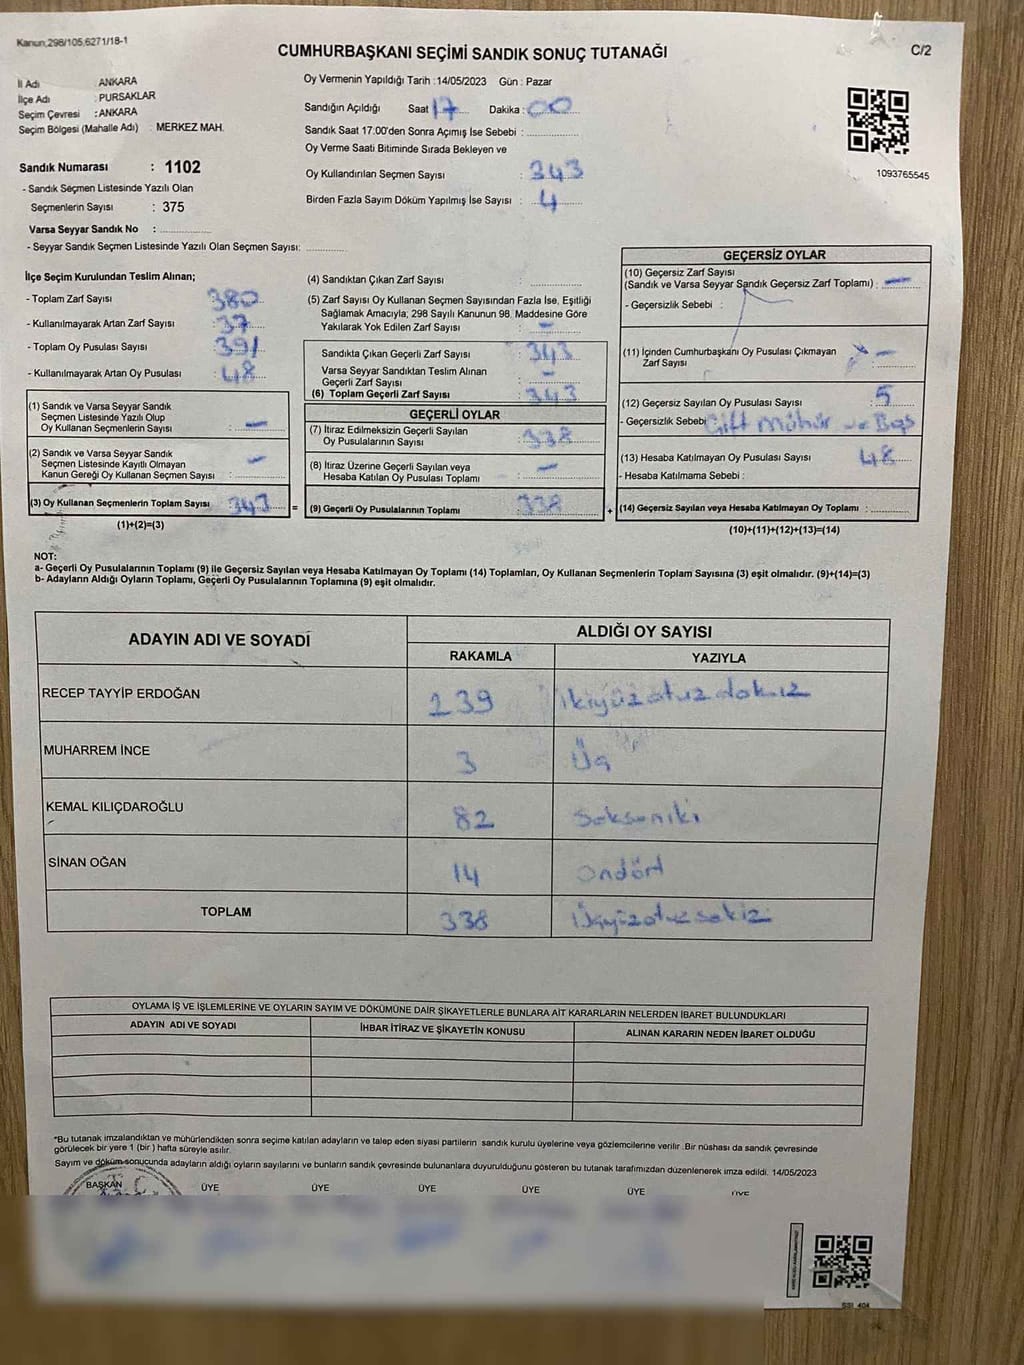 Kanun,298/105,6271/18-1
CUMHURBAŞKANI SEÇİMİ SANDIK SONUÇ TUTANAĞI
C/2
İl Adı : ANKARA
İlçe Adı : PURSAKLAR
Seçim Çevresi : ANKARA
Seçim Bölgesi (Mahalle Adı) : MERKEZ MAH.
Sandık Numarası : 1102
- Sandık Seçmen Listesinde Yazılı Olan
Seçmenlerin Sayısı : 375
Varsa Seyyar Sandık No :
- Seyyar Sandık Seçmen Listesinde Yazılı Olan Seçmen Sayısı:
Oy Vermenin Yapıldığı Tarih : 14/05/2023 Gün : Pazar
Sandığın Açıldığı Saat 17 Dakika : 00
Sandık Saat 17.00'den Sonra Açımış İse Sebebi :
Oy Verme Saati Bitiminde Sırada Bekleyen ve
Oy Kullandırılan Seçmen Sayısı : 343
Birden Fazla Sayım Döküm Yapılmış İse Sayısı : 4
1093765545
İlçe Seçim Kurulundan Teslim Alınan;
- Toplam Zarf Sayısı : 380
- Kullanılmayarak Artan Zarf Sayısı : 37
- Toplam Oy Pusulası Sayısı : 391
- Kullanılmayarak Artan Oy Pusulası : 48
(1) Sandık ve Varsa Seyyar Sandık
Seçmen Listesinde Yazılı Olup
Oy Kullanan Seçmenlerin Sayısı : -
(2) Sandık ve Varsa Seyyar Sandık
Seçmen Listesinde Kayıtlı Olmayan
Kanun Gereği Oy Kullanan Seçmen Sayısı : -
(3) Oy Kullanan Seçmenlerin Toplam Sayısı : 343
(1)+(2)=(3)
(4) Sandıktan Çıkan Zarf Sayısı :
(5) Zarf Sayısı Oy Kullanan Seçmen Sayısından Fazla İse, Eşitliği
Sağlamak Amacıyla; 298 Sayılı Kanunun 98. Maddesine Göre
Yakılarak Yok Edilen Zarf Sayısı : -
Sandıkta Çıkan Geçerli Zarf Sayısı : 343
Varsa Seyyar Sandıktan Teslim Alınan
Geçerli Zarf Sayısı : -
(6) Toplam Geçerli Zarf Sayısı : 343
GEÇERLİ OYLAR
(7) İtiraz Edilmeksizin Geçerli Sayılan
Oy Pusulalarının Sayısı : 338
(8) İtiraz Üzerine Geçerli Sayılan veya
Hesaba Katılan Oy Pusulası Toplamı : -
= (9) Geçerli Oy Pusulalarının Toplamı : 338
GEÇERSİZ OYLAR
(10) Geçersiz Zarf Sayısı
(Sandık ve Varsa Seyyar Sandık Geçersiz Zarf Toplamı) : -
- Geçersizlik Sebebi :
(11) İçinden Cumhurbaşkanı Oy Pusulası Çıkmayan
Zarf Sayısı : -
(12) Geçersiz Sayılan Oy Pusulası Sayısı : 5
- Geçersizlik Sebebi Çift mühür ve Boş
(13) Hesaba Katılmayan Oy Pusulası Sayısı : 48
- Hesaba Katılmama Sebebi :
+ (14) Geçersiz Sayılan veya Hesaba Katılmayan Oy Toplamı :
(10)+(11)+(12)+(13)=(14)
NOT:
a- Geçerli Oy Pusulalarının Toplamı (9) ile Geçersiz Sayılan veya Hesaba Katılmayan Oy Toplamı (14) Toplamları, Oy Kullanan Seçmenlerin Toplam Sayısına (3) eşit olmalıdır. (9)+(14)=(3)
b- Adayların Aldığı Oyların Toplamı, Geçerli Oy Pusulalarının Toplamına (9) eşit olmalıdır.
ADAYIN ADI VE SOYADI
ALDIĞI OY SAYISI
RAKAMLA YAZIYLA
RECEP TAYYİP ERDOĞAN 239 ikiyüzotuzdokuz
MUHARREM İNCE 3 Üç
KEMAL KILIÇDAROĞLU 82 Seksen iki
SİNAN OĞAN 14 Ondört
TOPLAM 338 Üçyüzotuzsekiz
OYLAMA İŞ VE İŞLEMLERİNE VE OYLARIN SAYIM VE DÖKÜMÜNE DAİR ŞİKAYETLERLE BUNLARA AİT KARARLARIN NELERDEN İBARET BULUNDUKLARI
ADAYIN ADI VE SOYADI İHBAR İTİRAZ VE ŞİKAYETİN KONUSU ALINAN KARARIN NEDEN İBARET OLDUĞU
*Bu tutanak imzalandıktan ve mühürlendikten sonra seçime katılan adayların ve talep eden siyasi partilerin sandık kurulu üyelerine veya gözlemcilerine verilir .Bir nüshası da sandık çevresinde
görülecek bir yere 1 (bir ) hafta süreyle asılır.
Sayım ve döküm sonucunda adayların aldığı oyların sayılarını ve bunların sandık çevresinde bulunanlara duyurulduğunu gösteren bu tutanak tarafımızdan düzenlenerek imza edildi. 14/05/2023
BAŞKAN ÜYE ÜYE ÜYE ÜYE ÜYE ÜYE